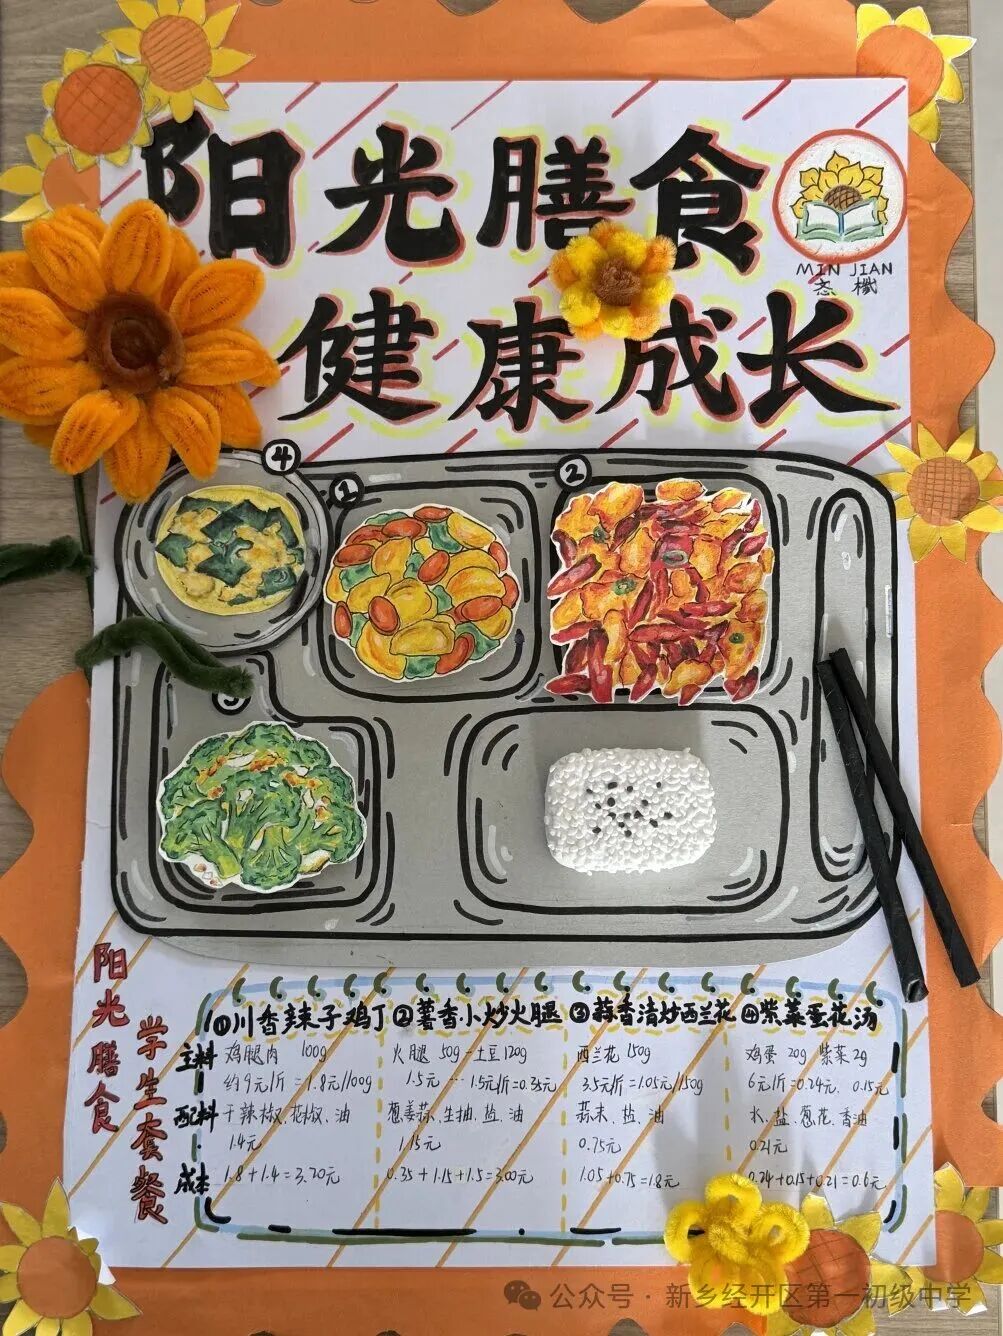 阳光膳食
MIN JIAN
健康成长
④
①
②
阳光膳食
学生套餐
①川香辣子鸡丁 ②薯香小炒火腿 ③蒜香清炒西兰花 ④紫菜蛋花汤
主料 鸡腿肉 100g 火腿 50g 土豆120g 西兰花 150g 鸡蛋 20g 紫菜2g
约9元/斤=1.8元/100g 1.5元 … 1.5元/斤=0.35元 3.5元/斤=1.05元/150g 6元/斤=0.24元 0.15元
配料 干辣椒、花椒、油 葱姜蒜、生抽、盐、油 蒜末、盐、油 水、盐、葱花、香油
1.4元 1.15元 0.75元 0.21元
成本 1.8+1.4=3.20元 0.35+1.15+1.5=3.00元 1.05+0.75=1.8元 0.24+0.15+0.21=0.6元
公众号·新乡经开区第一初级中学